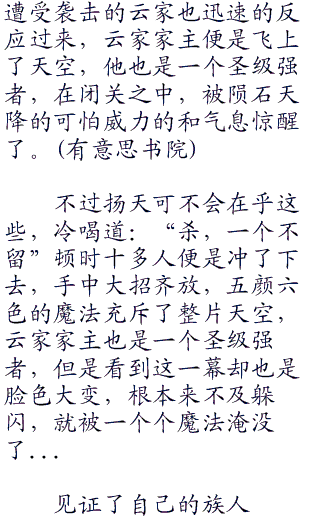 遭受袭击的云家也迅速的反
应过来，云家家主便是飞上
了天空，他也是一个圣级强
者，在闭关之中，被陨石天
降的可怕威力的和气息惊醒
了。(有意思书院)
不过扬天可不会在乎这
些，冷喝道：“杀，一个不
留”顿时十多人便是冲了下
去，手中大招齐放，五颜六
色的魔法充斥了整片天空，
云家家主也是一个圣级强
者，但是看到这一幕却也是
脸色大变，根本来不及躲
闪，就被一个个魔法淹没
了...
见证了自己的族人